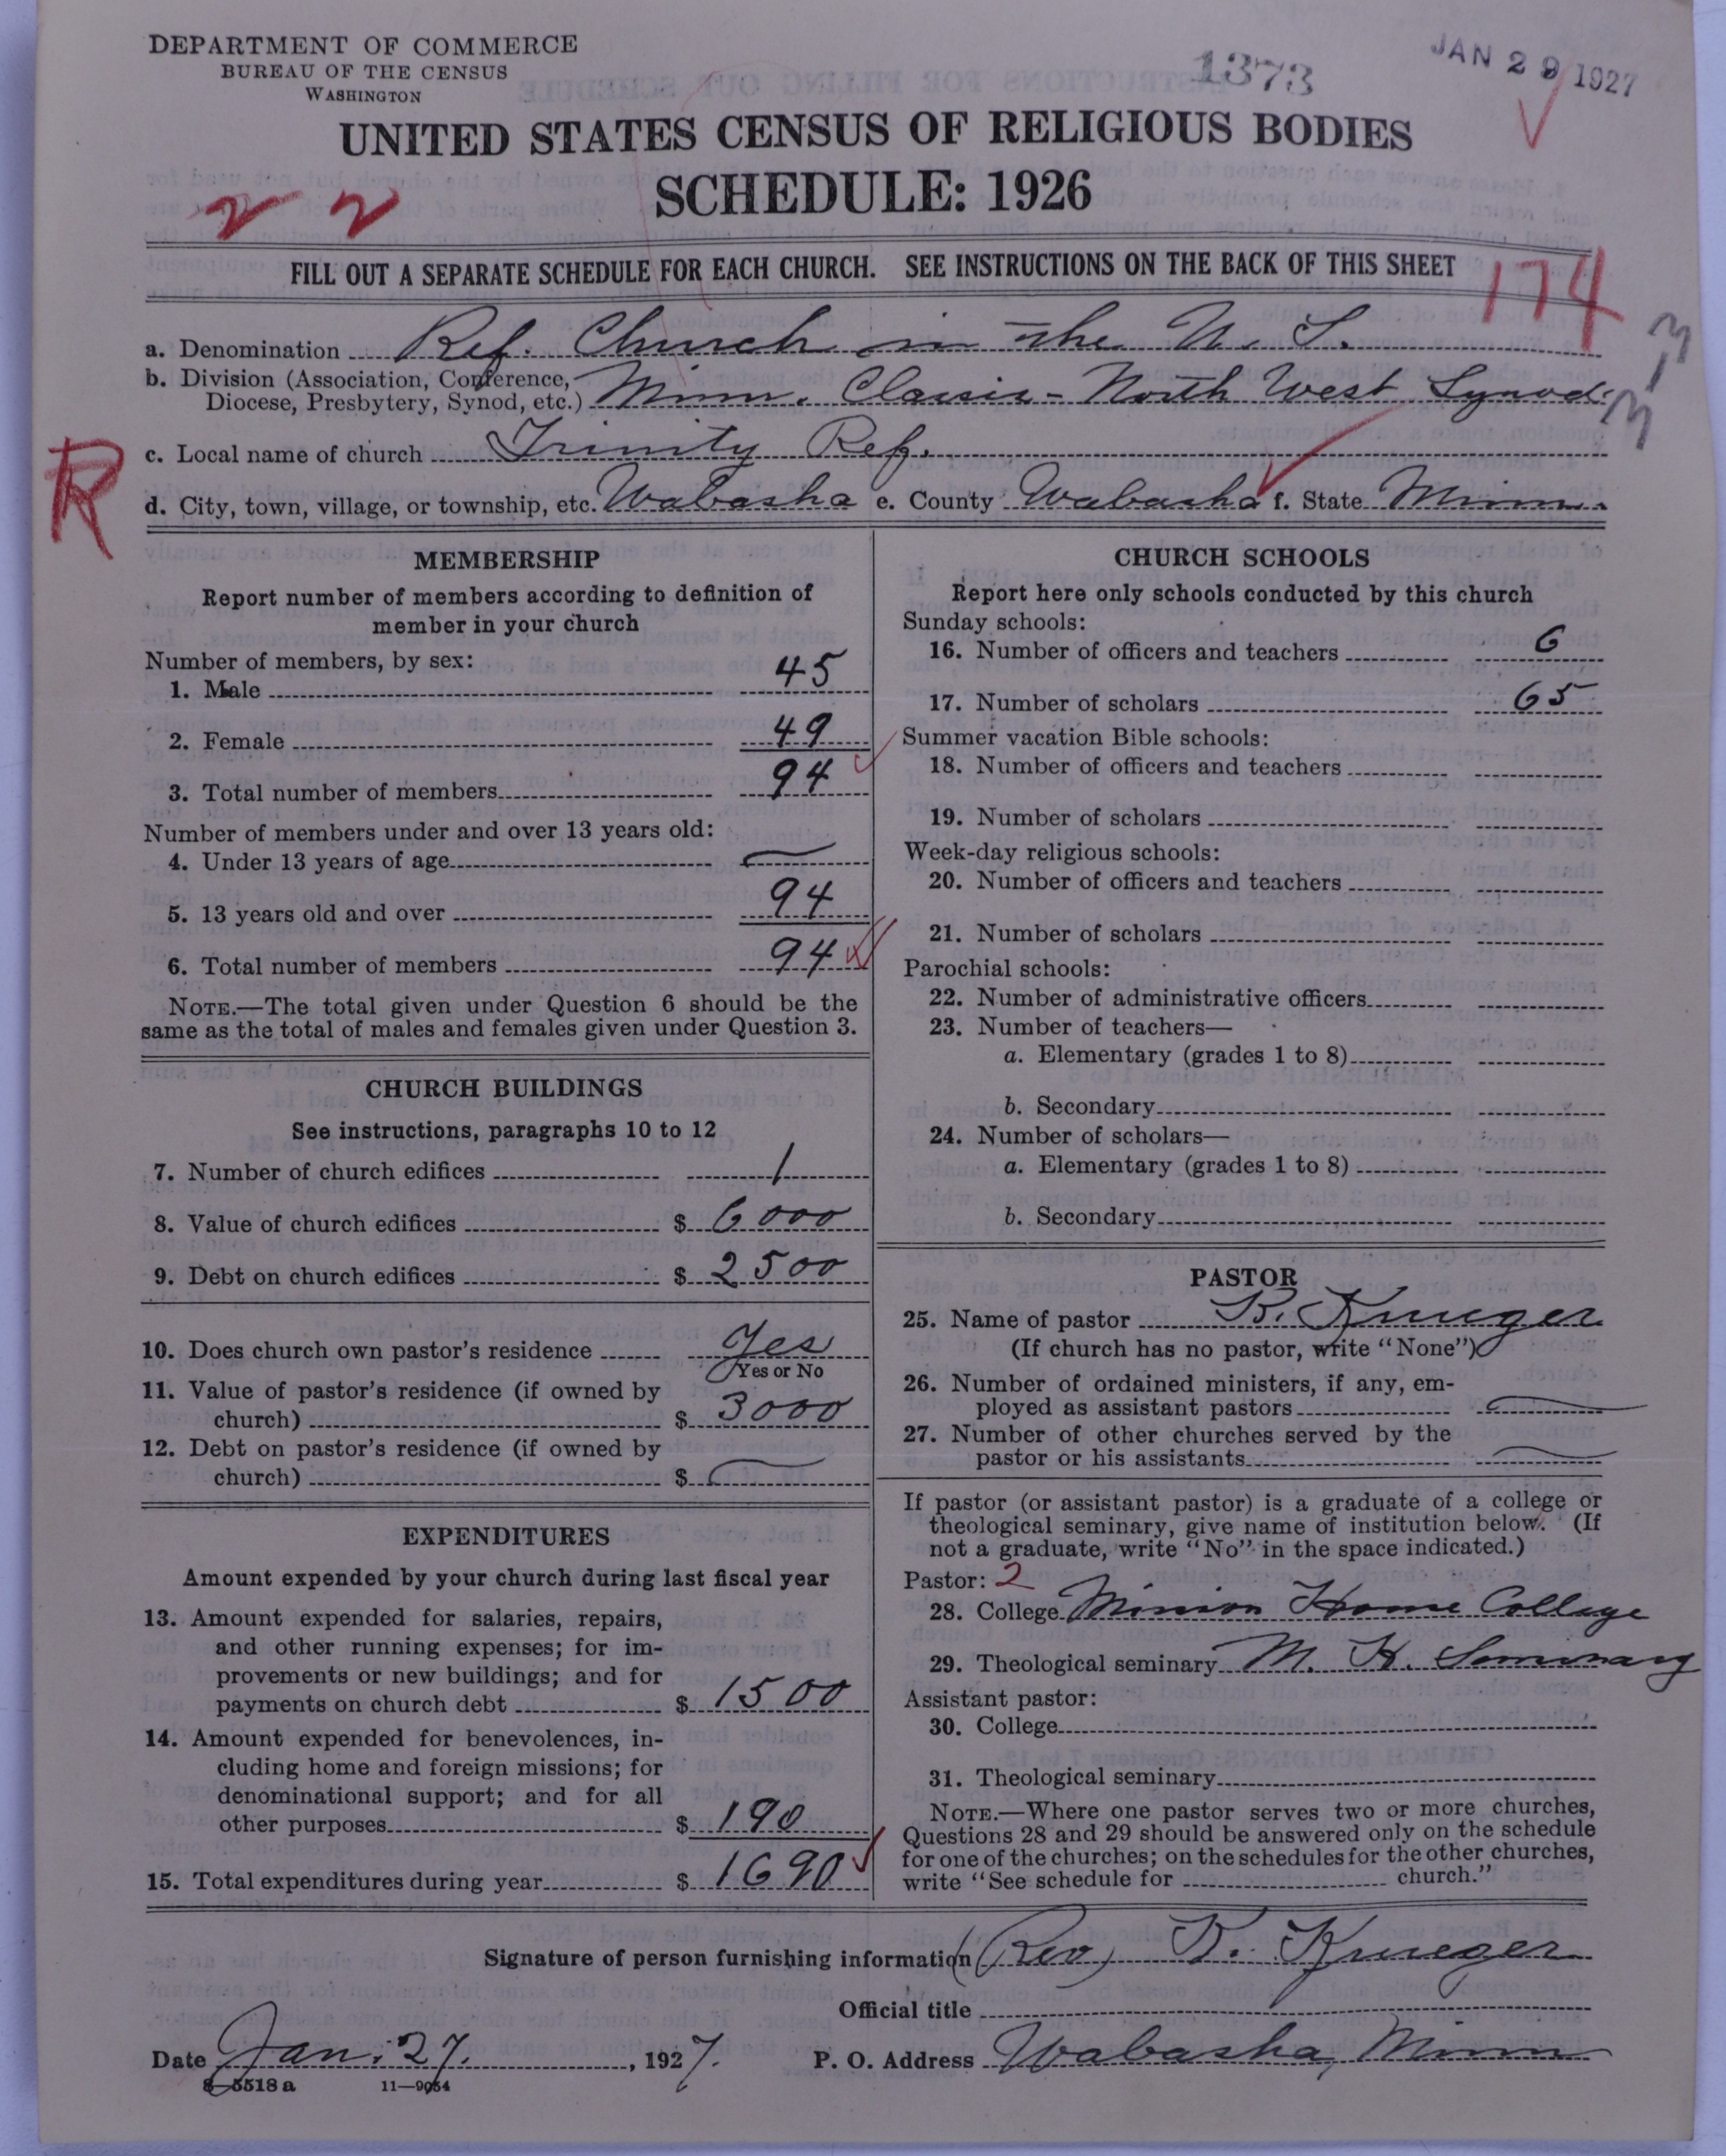 DEPARTMENT OF COMMERCE
BUREAU OF THE CENSUS
WASHINGTON
1373
JAN 29 1927
UNITED STATES CENSUS OF RELIGIOUS BODIES
SCHEDULE: 1926
2 2
FILL OUT A SEPARATE SCHEDULE FOR EACH CHURCH. SEE INSTRUCTIONS ON THE BACK OF THIS SHEET
174
a. Denomination Ref. Church in the U. S.
b. Division (Association, Conference, Diocese, Presbytery, Synod, etc.) Minn. Classis - North West Synod
3-3
R
c. Local name of church Trinity Ref.
d. City, town, village, or township, etc. Wabasha e. County Wabasha f. State Minn.
MEMBERSHIP
Report number of members according to definition of
member in your church
Number of members, by sex:
1. Male 45
2. Female 49
3. Total number of members 94
Number of members under and over 13 years old:
4. Under 13 years of age —
5. 13 years old and over 94
6. Total number of members 94
NOTE.—The total given under Question 6 should be the
same as the total of males and females given under Question 3.
CHURCH BUILDINGS
See instructions, paragraphs 10 to 12
7. Number of church edifices 1
8. Value of church edifices $ 6000
9. Debt on church edifices $ 2500
10. Does church own pastor's residence Yes
Yes or No
11. Value of pastor's residence (if owned by
church) $ 3000
12. Debt on pastor's residence (if owned by
church) $ —
EXPENDITURES
Amount expended by your church during last fiscal year
13. Amount expended for salaries, repairs,
and other running expenses; for im-
provements or new buildings; and for
payments on church debt $ 1500
14. Amount expended for benevolences, in-
cluding home and foreign missions; for
denominational support; and for all
other purposes $ 190
15. Total expenditures during year $ 1690
CHURCH SCHOOLS
Report here only schools conducted by this church
Sunday schools:
16. Number of officers and teachers 6
17. Number of scholars 65
Summer vacation Bible schools:
18. Number of officers and teachers
19. Number of scholars
Week-day religious schools:
20. Number of officers and teachers
21. Number of scholars
Parochial schools:
22. Number of administrative officers
23. Number of teachers—
a. Elementary (grades 1 to 8)
b. Secondary
24. Number of scholars—
a. Elementary (grades 1 to 8)
b. Secondary
PASTOR
25. Name of pastor B. Krueger
(If church has no pastor, write "None")
26. Number of ordained ministers, if any, em-
ployed as assistant pastors —
27. Number of other churches served by the
pastor or his assistants —
If pastor (or assistant pastor) is a graduate of a college or
theological seminary, give name of institution below. (If
not a graduate, write "No" in the space indicated.)
Pastor: 2
28. College Mission Home College
29. Theological seminary M. H. Seminary
Assistant pastor:
30. College
31. Theological seminary
NOTE.—Where one pastor serves two or more churches,
Questions 28 and 29 should be answered only on the schedule
for one of the churches; on the schedules for the other churches,
write "See schedule for church."
Signature of person furnishing information (Rev) B. Krueger
Official title
Date Jan. 27. , 1927. P. O. Address Wabasha, Minn
8—5518 a 11—9054